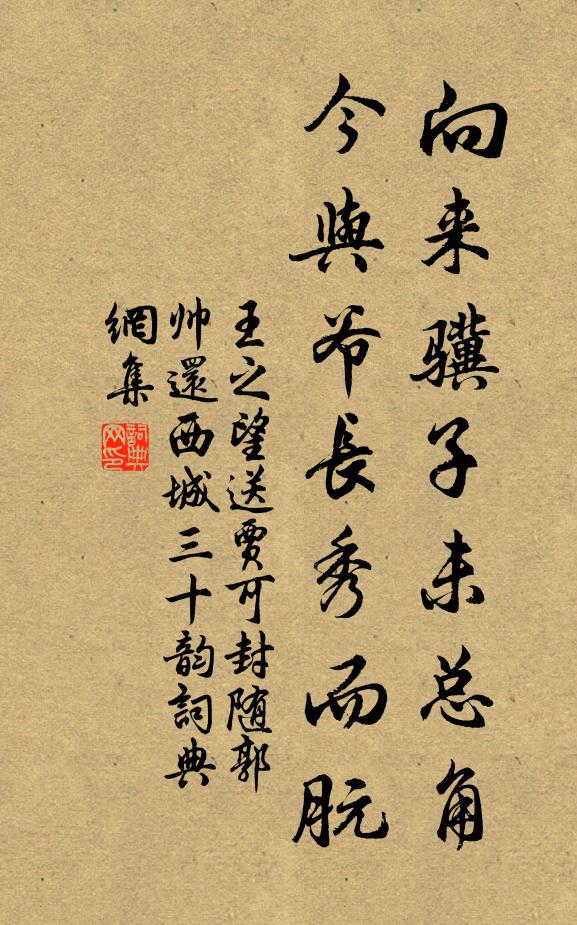 向来骥子未总角
今与爷長秀而朊
王之望送贾可封随郭
帅還西城三十韵詞典
網集
詞典
网印